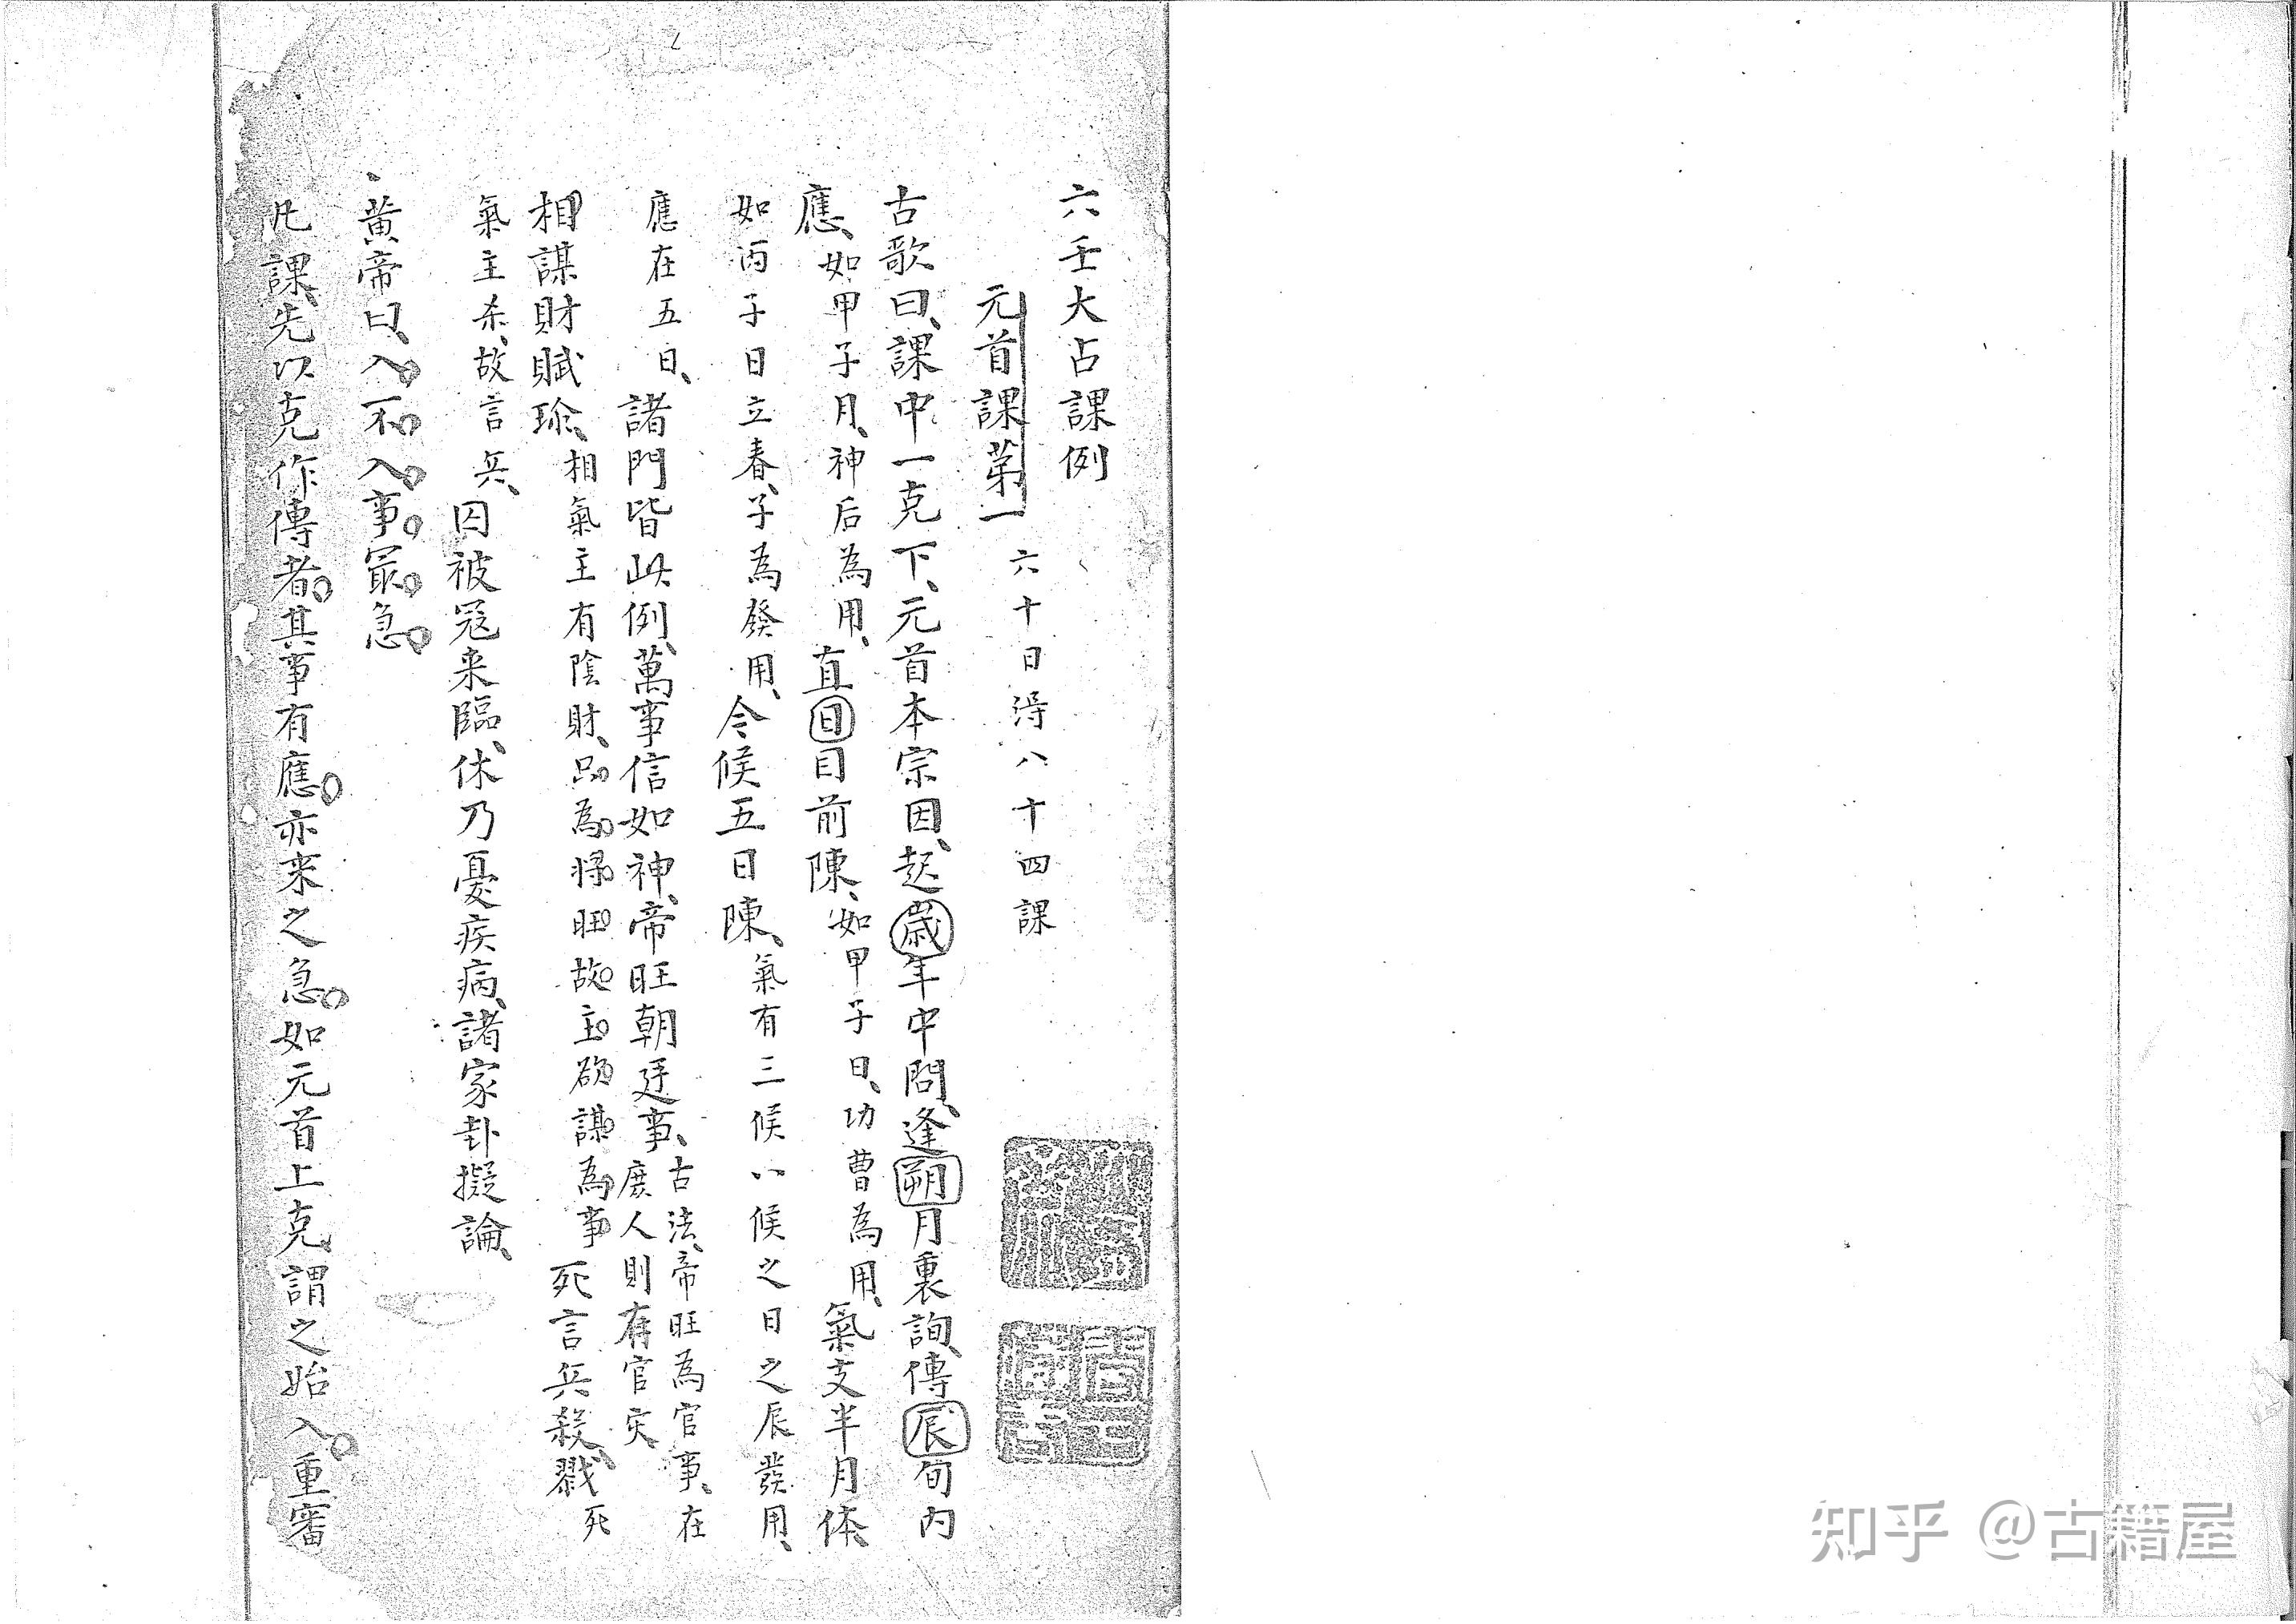 六壬大占課例
元首課第一 六十日得八十四課
古歌曰、課中一克下、元首本宗因、起歲年中問、逢朔月裏詢、傳辰旬内
應、如甲子月、神后為用、直目前陳、如甲子日、功曹為用、氣支半月体、
如丙子日立春、子為發用、令候五日陳、氣有三候八候之日之辰發用、
應在五日、諸門皆此例、萬事信如神、帝旺朝廷事、古法、帝旺為官事、在庶人則存官灾、
相謀財賦珎、相氣主有陰財、只為將旺故主欲謀為事 死言兵殺戮、死
氣主杀、故言兵、囚被冦来臨、休乃憂疾病、諸家卦擬論、
黄帝曰、入不入事最急
凡課、先以克作傳者、其事有應、亦来之急、如元首上克、謂之始入、重審
知乎 @古籍屋